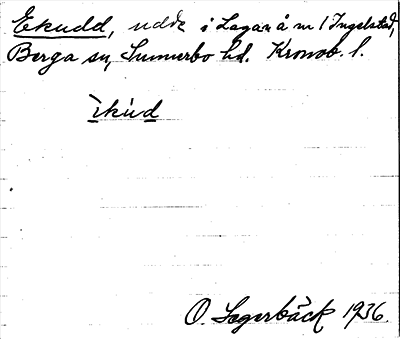 Ekudd, udde i Lagan å m 1 Ingelstad,
Berga sn, Sunnerbo hd. Kronob. l.
ìkùd
O. Lagerbäck 1936.